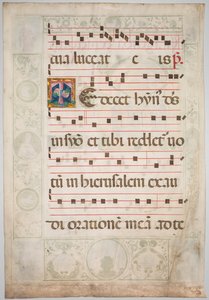 tua luceat e is ps.
TE decet hyn̄' ds̄
in syō et tibi reddet' uo
tū in hierusalem exau
di orationē meā ad te